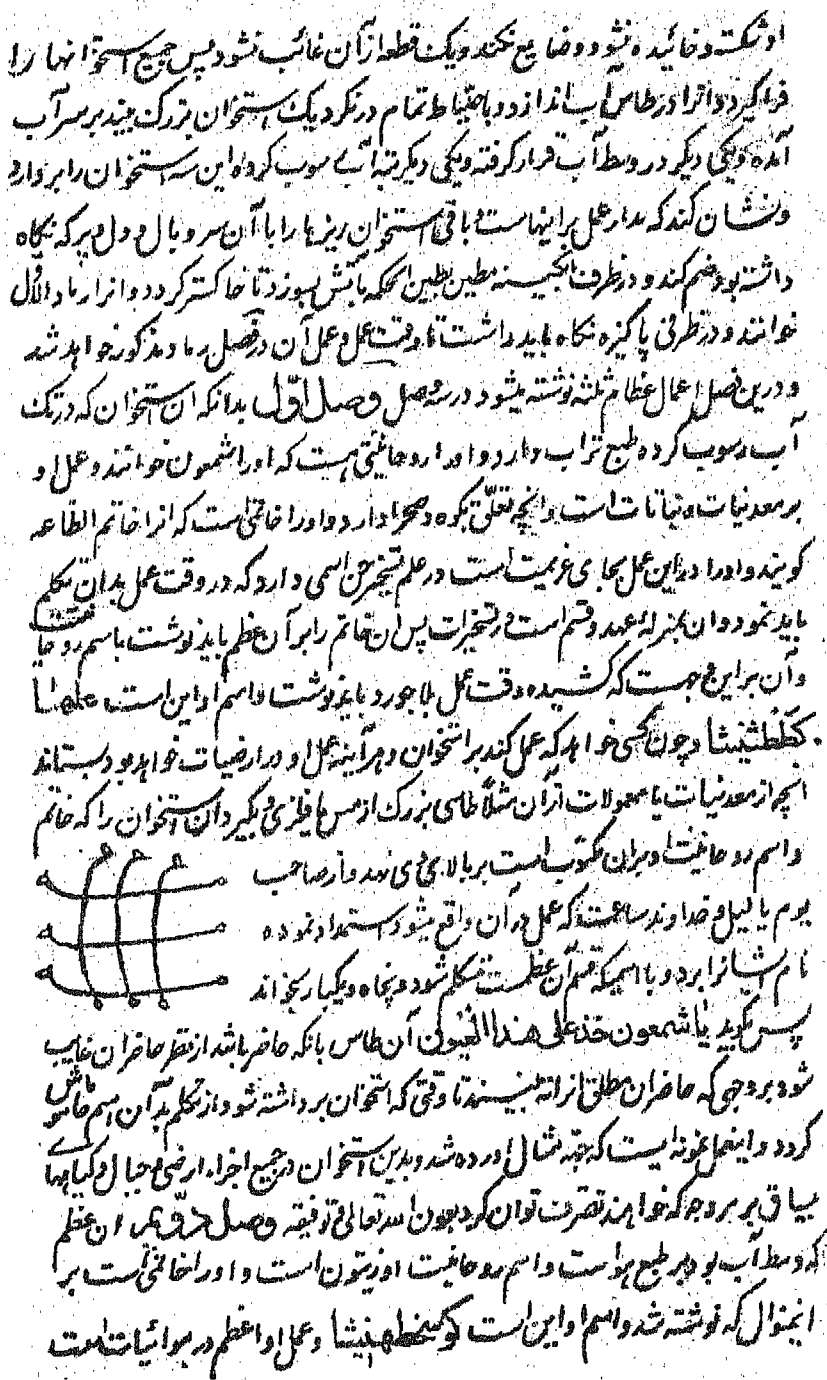 او شکسته و خائیده نشود و ضایع نکند و یک قطعه از آن غائب نشود پس جمیع استخوانها را
فرا گیرد و انرا در طاس آب اندازد و باحتیاط تمام درنگرد یک استخوان بزرک بیند بر سر آب
آمده و یکی دیکر در وسط آب قرار گرفته و یکی دیکر بته آب رسوب کرده این سه استخوان را بردارد
و نشان کند که مدار عمل بر اینهاست و باقی استخوان ریزها را با آن سر و بال و دل و پر که نکاه
داشته بود ضم کند و در ظرف ابکینه مطین بطین الحکمه باتش بسوزد تا خاکستر کردد و انرا رماد الاول
خوانند و در ظرفی پاکیزه نکاه باید داشت تا وقت عمل و عمل آن در فصل رماد مذکور خواهد شد
و درین فصل اعمال عظام ثلثه نوشته میشود در سه وصل وصل اوّل بدانکه ان استخوان که در تک
آب رسوب کرده طبع تراب دارد و او را روحانیتی هست که او را شمعون خوانند و عمل او
بر معدنیات و نباتات است و انچه تعلّق بکوه و صحرا دارد و او را خاتمی است که انرا خاتم الطاعه
کویند و او را در این عمل بجای عزیمت است در علم تسخیر جن اسمی دارد که در وقت عمل بدان تکلم
باید نمود و ان بمنزلهٔ عهد و قسم است در تسخیرات پس ان خاتم را بر آن عظم باید نوشت باسم روحانیت
و آن بر این وجهست که کشیده وقت عمل بلاجورد باید نوشت و اسم او این است
کطلطثنیثا و چون کسی خواهد که عمل کند بر استخوان و هر آینه عمل او در ارضیات خواهد بود بستاند
انچه از معدنیات یا معمولات از آن مثلا طاسی بزرک از مس یا فلزی و بکیرد ان استخوان را که خاتم
و اسم روحانیت او بران مکتوب است بر بالای وی نهد و از صاحب
یوم یا لیل و خداوند ساعت که عمل در آن واقع میشود استمداد نموده
نام ایشانرا برد و با اسمیکه قسم آن عظمست متکلم شود و پنجاه و یکبار بخواند
پس بکوید یا شمعون خذ علی هذا العیون آن طاس بانکه حاضر باشد از نظر حاضران غایب
شود بر وجهی که حاضران مطلق انرا نه بینند تا وقتی که استخوان برداشته شود و از تکلم بدان اسم خاموش
کردد و اینعمل نمونه ایست که بجهة مثال اورده شد و بدین استخوان در جمیع اجزاء ارضی و جبال و کیاهها
بیاق بر هر وجه که خواهند تصرف توان کرد بعون الله تعالی و توفیقه وصل دوّیم ان عظم
که وسط آب بود بر طبع هواست و اسم روحانیت او زیتون است و او را خاتمی است بر
اینمنوال که نوشته شد و اسم او این است و عمل او اعظم در هوائیات است